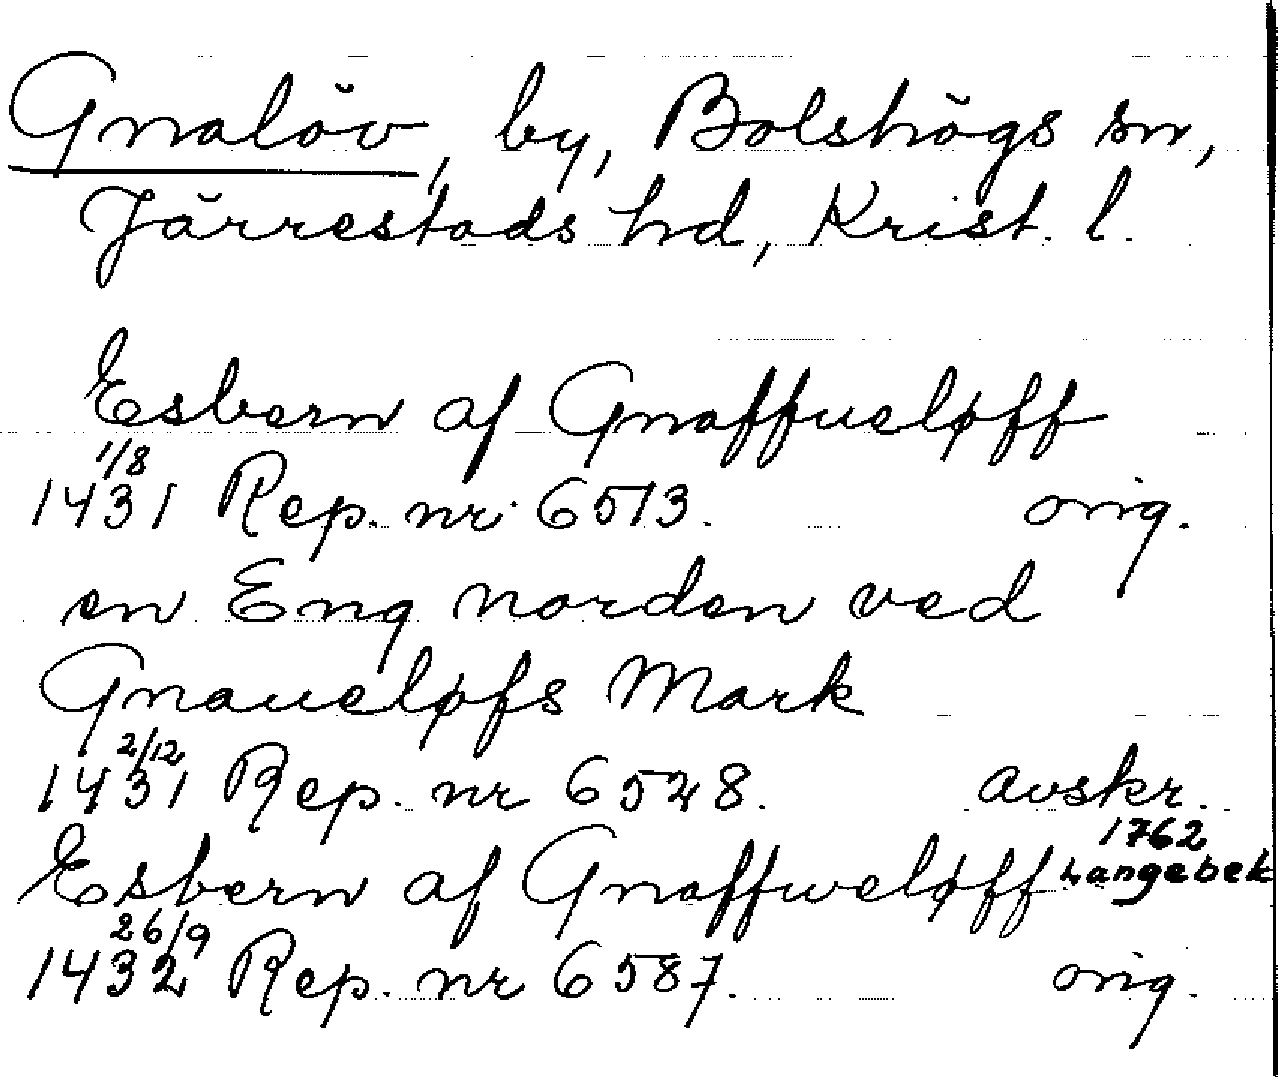 Gnalöv, by, Bolshögs sn,
Järrestads hd, Krist. l.
Esbern af Gnaffueløff
1/8
1431 Rep. nr 6513. orig.
en Eng norden ved
Gnaueløfs Mark
2/12
1431 Rep. nr 6528. avskr.
1762
Esbern af Gnaffweløff Langebek
26/9
1432 Rep. nr 6587. orig.